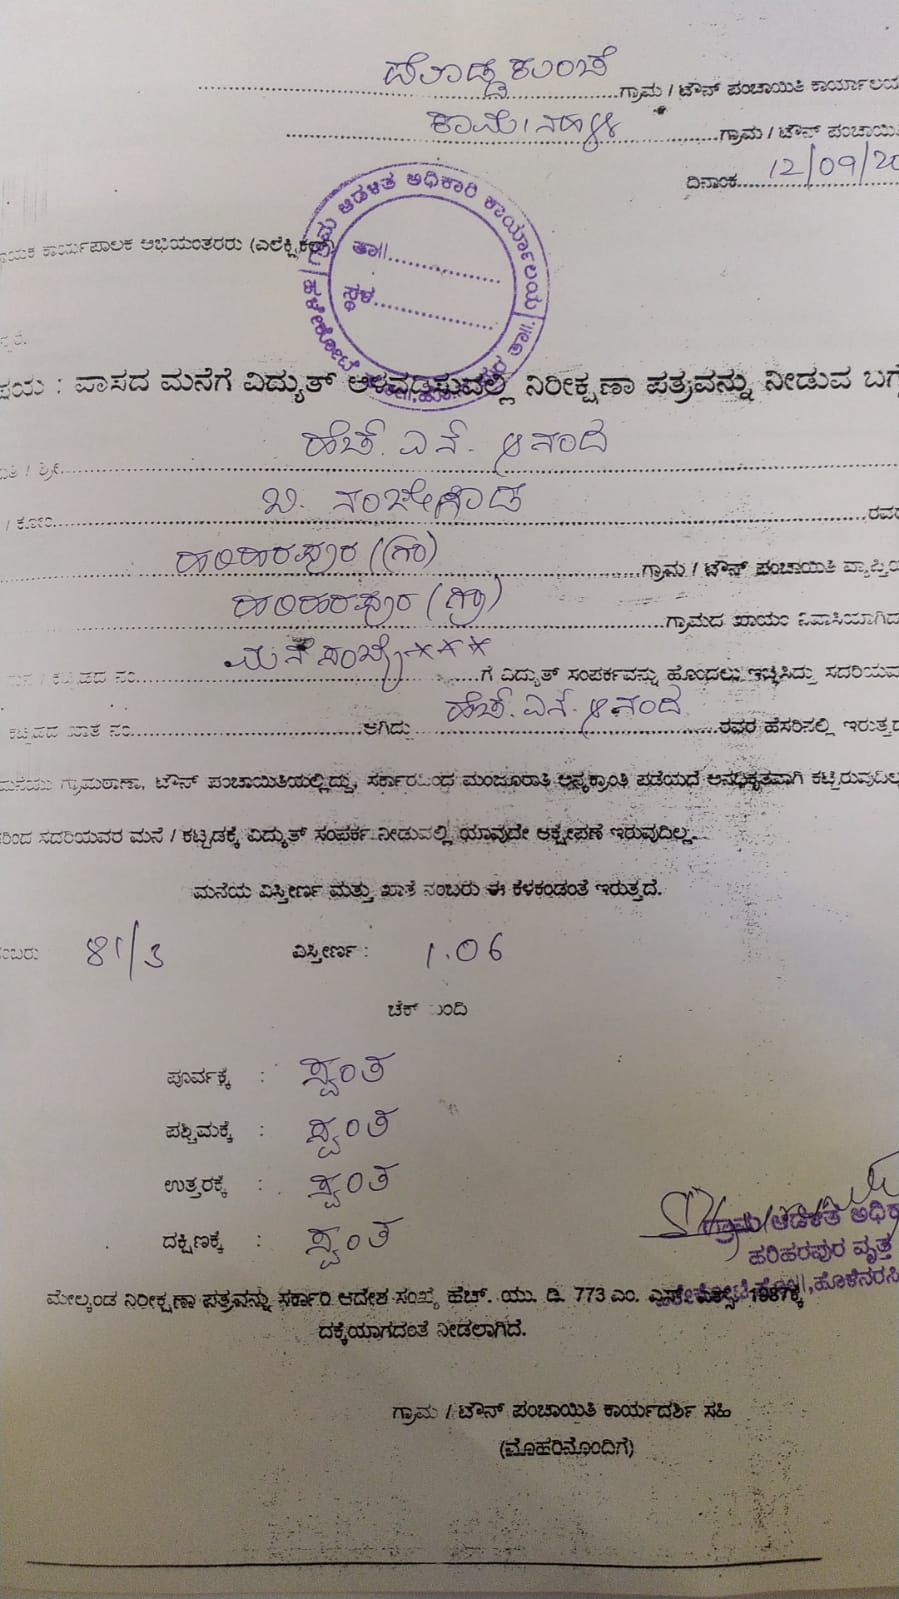 ದೊಡ್ಡಕುಂಚೆ ಗ್ರಾಮ / ಟೌನ್ ಪಂಚಾಯಿತಿ ಕಾರ್ಯಾಲಯ
ಕಾಮೇನಹಳ್ಳಿ ಗ್ರಾಮ / ಟೌನ್ ಪಂಚಾಯಿತಿ
ದಿನಾಂಕ 12/09/20
ಗ್ರಾಮ ಆಡಳಿತ ಅಧಿಕಾರಿ ಕಾರ್ಯಾಲಯ
ತಾ||
ಸ್ಥಳ
ಕಾರ್ಯಪಾಲಕ ಅಭಿಯಂತರರು (ಎಲೆಕ್ಟ್ರಿಕಲ್)
: ವಾಸದ ಮನೆಗೆ ವಿದ್ಯುತ್ ಅಳವಡಿಸುವಲ್ಲಿ ನಿರೀಕ್ಷಣಾ ಪತ್ರವನ್ನು ನೀಡುವ ಬಗ್ಗೆ
/ ಶ್ರೀ ಹೆಚ್. ಎನ್. ಆನಂದ
/ ಕೋಂ ಬಿ. ನಂಜೇಗೌಡ ರವರ
ಹರಿಹರಪುರ (ಗ್ರಾ) ಗ್ರಾಮ / ಟೌನ್ ಪಂಚಾಯಿತಿ ವ್ಯಾಪ್ತಿಯ
ಹರಿಹರಪುರ (ಗ್ರಾ) ಗ್ರಾಮದ ಖಾಯಂ ನಿವಾಸಿಯಾಗಿದ್ದು
ಮನೆ / ಕಟ್ಟಡದ ನಂ ಮನೆ ಸಂಖ್ಯೆ *** ಗೆ ವಿದ್ಯುತ್ ಸಂಪರ್ಕವನ್ನು ಹೊಂದಲು ಇಚ್ಛಿಸಿದ್ದು ಸದರಿಯವರ
ಕಟ್ಟಡದ ಖಾತೆ ನಂ ಆಗಿದ್ದು ಹೆಚ್. ಎನ್. ಆನಂದ ರವರ ಹೆಸರಿನಲ್ಲಿ ಇರುತ್ತದೆ
ಗ್ರಾಮಠಾಣಾ, ಟೌನ್ ಪಂಚಾಯಿತಿಯಲ್ಲಿದ್ದು, ಸರ್ಕಾರದಿಂದ ಮಂಜೂರಾತಿ ಅನ್ಯಕ್ರಾಂತಿ ಪಡೆಯದೆ ಅನಧಿಕೃತವಾಗಿ ಕಟ್ಟಿರುವುದಿಲ್ಲ
ಸದರಿಯವರ ಮನೆ / ಕಟ್ಟಡಕ್ಕೆ ವಿದ್ಯುತ್ ಸಂಪರ್ಕ ನೀಡುವಲ್ಲಿ ಯಾವುದೇ ಆಕ್ಷೇಪಣೆ ಇರುವುದಿಲ್ಲ.
ಮನೆಯ ವಿಸ್ತೀರ್ಣ ಮತ್ತು ಖಾತೆ ನಂಬರು ಈ ಕೆಳಕಂಡಂತೆ ಇರುತ್ತದೆ.
81/3 ವಿಸ್ತೀರ್ಣ : 1.06
ಚೆಕ್ ಬಂದಿ
ಪೂರ್ವಕ್ಕೆ : ಸ್ವಂತ
ಪಶ್ಚಿಮಕ್ಕೆ : ಸ್ವಂತ
ಉತ್ತರಕ್ಕೆ : ಸ್ವಂತ
ದಕ್ಷಿಣಕ್ಕೆ : ಸ್ವಂತ
ಗ್ರಾಮ ಆಡಳಿತ
ಹರಿಹರಪುರ ವೃತ್ತ
ಮೇಲ್ಕಂಡ ನಿರೀಕ್ಷಣಾ ಪತ್ರವನ್ನು ಸರ್ಕಾರಿ ಆದೇಶ ಸಂಖ್ಯೆ ಹೆಚ್. ಯು. ಡಿ. 773 ಎಂ. 1987ಕ್ಕೆ
ದಕ್ಕೆಯಾಗದಂತೆ ನೀಡಲಾಗಿದೆ.
ಗ್ರಾಮ / ಟೌನ್ ಪಂಚಾಯಿತಿ ಕಾರ್ಯದರ್ಶಿ ಸಹಿ
(ಮೊಹರಿನೊಂದಿಗೆ)